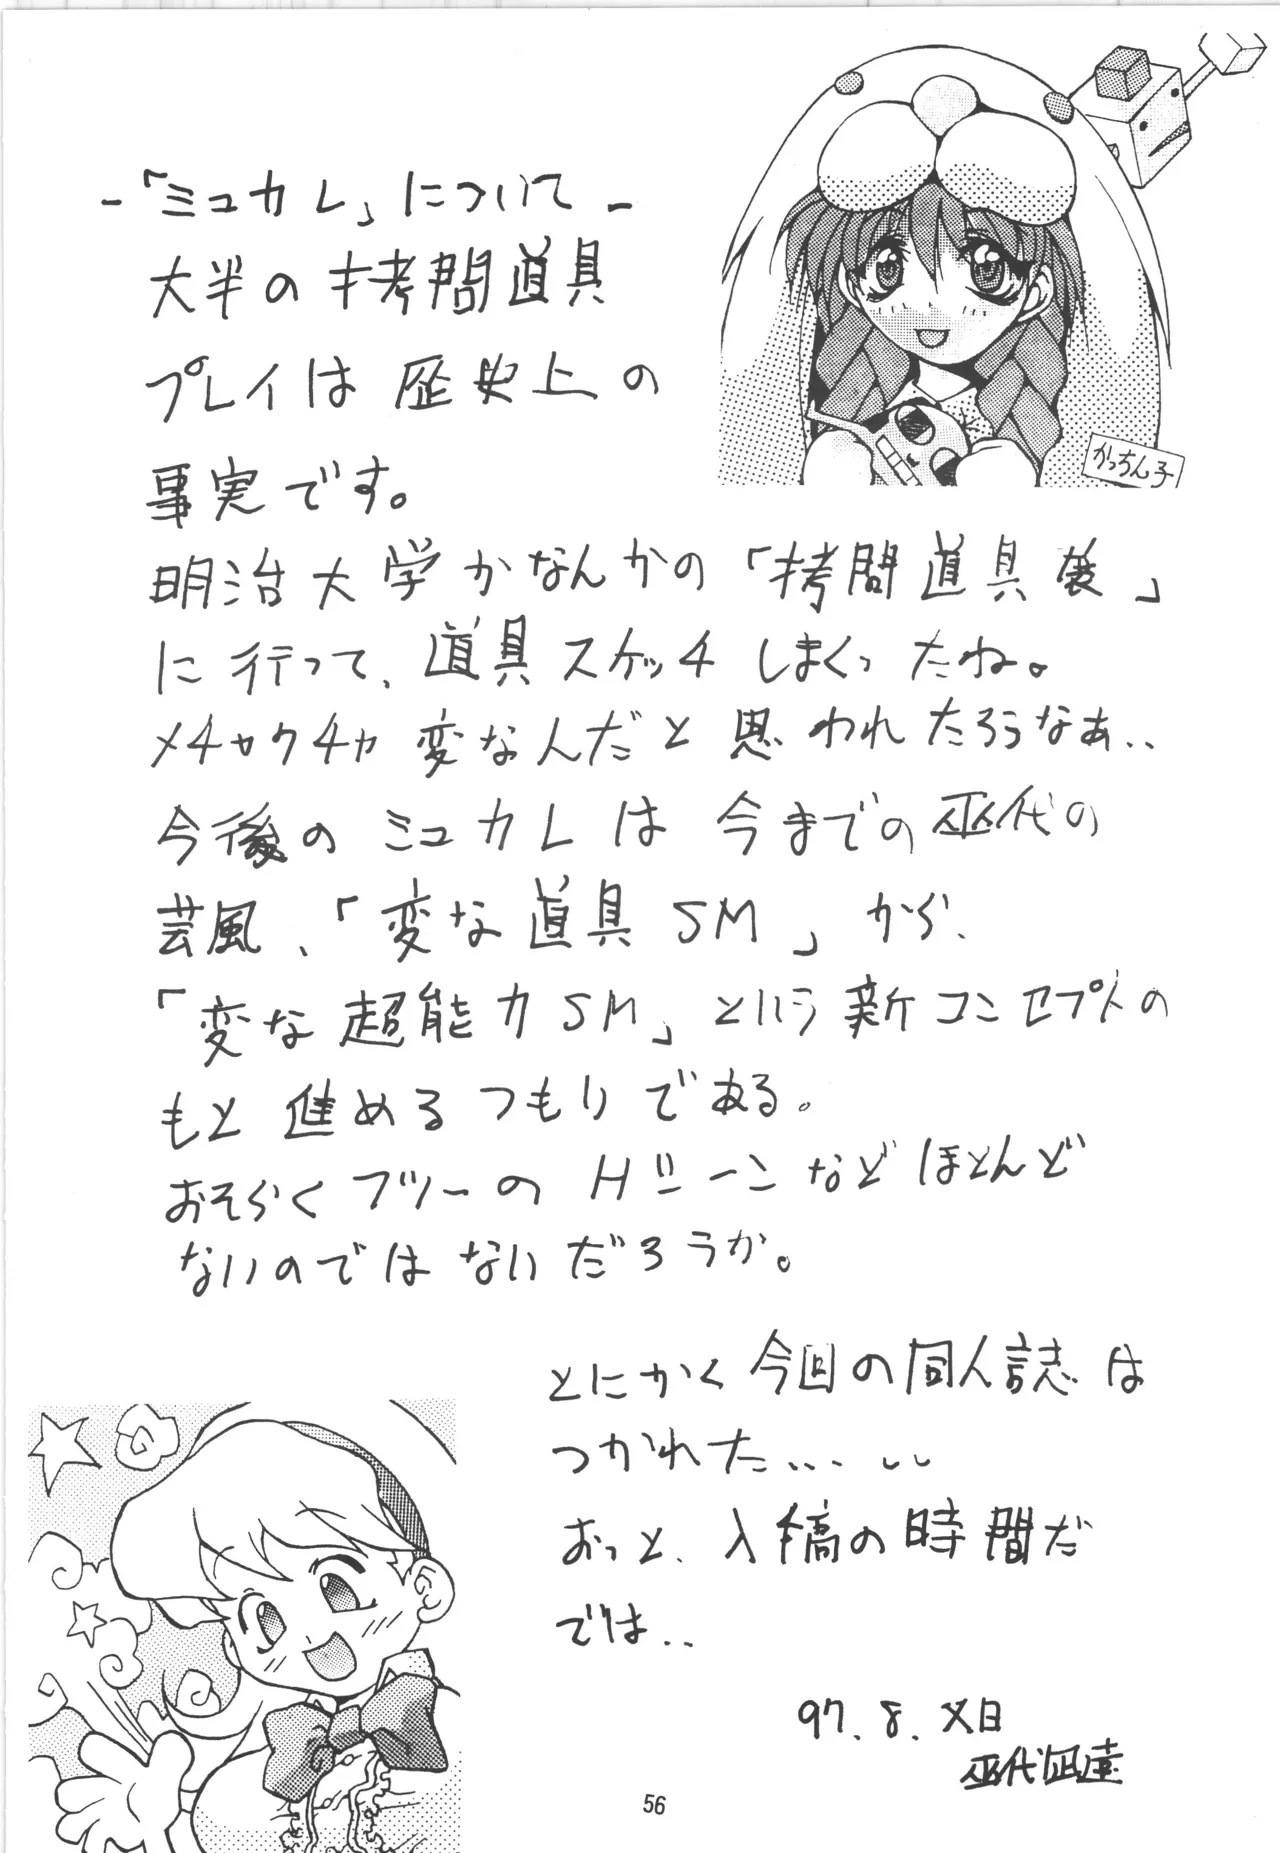 -「ミュカレ」について-
大半の拷問道具
プレイは歴史上の
事実です。
かっちん子
明治大学かなんかの「拷問道具展」
に行って、道具スケッチしまくったね。
メチャクチャ変なんだと思われたろうなぁ..
今後のミュカレは今までの巫代の
芸風、「変な道具SM」から、
「変な超能力SM」という新コンセプトの
もと進めるつもりである。
おそらくフツーのHシーンなどほとんど
ないのではないだろうか。
とにかく今回の同人誌は
つかれた......
おっと、入稿の時間だ
では..
97.8.メ日
巫代凪遠
56